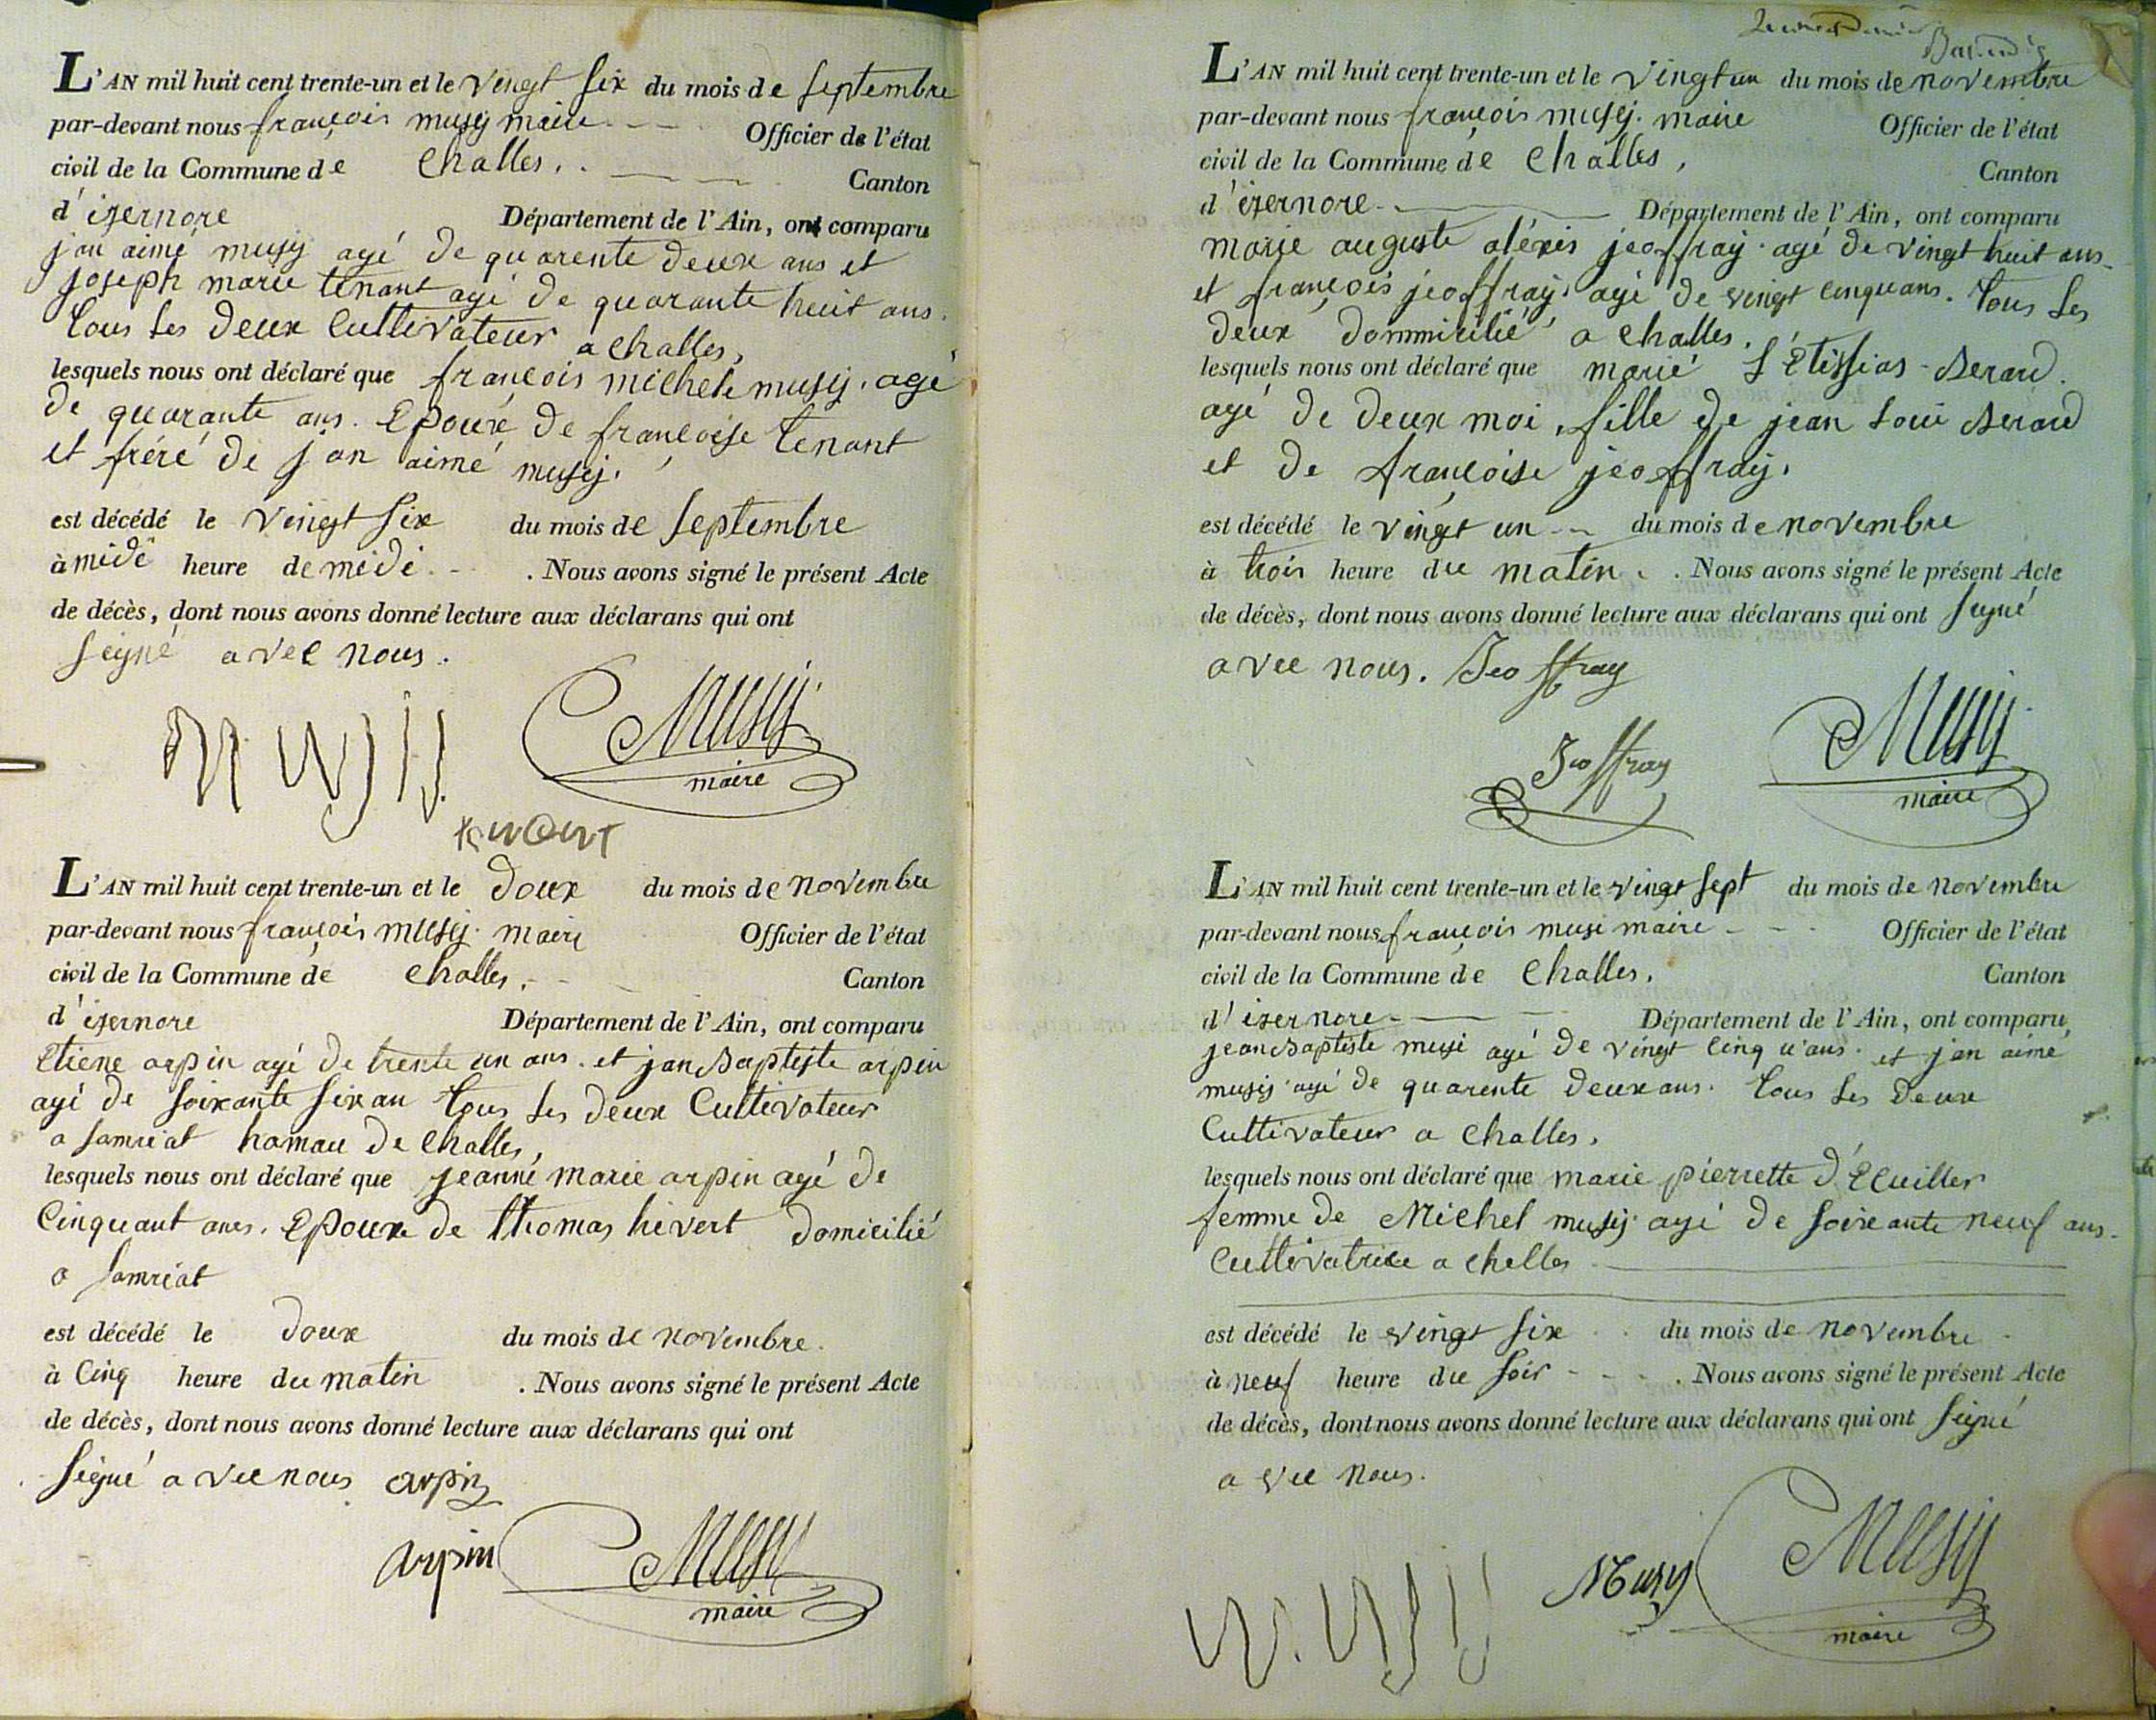 L'AN mil huit cent trente-un et le vingt six du mois de septembre
par-devant nous françois musy maire Officier de l'état
civil de la Commune de Challes. Canton
d'izernore Département de l'Ain, ont comparu
jan aimé musy agé de quarente deux ans et
joseph marie tenant agé de quarante huit ans.
tous les deux Cultivateur a challes,
lesquels nous ont déclaré que françois michele musy. agé
de quarante ans. Epoux de françoise tenant
et fréré de jan aimé musy.
est décédé le vingt six du mois de septembre
à midi heure de midi. Nous avons signé le présent Acte
de décès, dont nous avons donné lecture aux déclarans qui ont
signé avec nous.
Musy
maire
MUSY
tenant
L'AN mil huit cent trente-un et le doux du mois de novembre
par-devant nous françois musy maire Officier de l'état
civil de la Commune de Challes. Canton
d'izernore Département de l'Ain, ont comparu
Etiene arpin agé de trente un ans. et jan Baptiste arpin
agé de soixante six an tous les deux Cultivateur
a samriat hamau de Challes,
lesquels nous ont déclaré que jeanne marie arpin agé de
Cinquant ans. Epoux de thomas hivert domicilié
a samriat
est décédé le doux du mois de novembre.
à Cinq heure du matin. Nous avons signé le présent Acte
de décès, dont nous avons donné lecture aux déclarans qui ont
signé avec nous arpin
arpin
Musy
maire
L'AN mil huit cent trente-un et le vingt un du mois de novembre
par-devant nous françois musy. maire Officier de l'état
civil de la Commune de Challes, Canton
d'izernore Département de l'Ain, ont comparu
marie auguste aléxis jeoffray. agé de vingt huit ans
et françois jeoffray. agé de vingt cinq ans. tous les
deux dommicilié a challes.
lesquels nous ont déclaré que marié Berard.
agé de deux moi, fille de jean Loui Berard
et de françoise jeoffray.
est décédé le vingt un du mois de novembre
à trois heure du matin. Nous avons signé le présent Acte
de décès, dont nous avons donné lecture aux déclarans qui ont signé
avec nous. Jeoffray
Jeoffray
Musy
maire
L'AN mil huit cent trente-un et le vingt sept du mois de novembre
par-devant nous françois musi maire Officier de l'état
civil de la Commune de Challes. Canton
d'izernore Département de l'Ain, ont comparu
jean Baptiste musi agé de vingt cinq u'ans. et jan aimé
musy agé de quarente deux ans. tous les deux
Cultivateur a challes.
lesquels nous ont déclaré que marie pierrette d'Ecuiller
femme de Michel musy agé de soixante neuf ans.
Cultivatrice a challes
est décédé le vingt six du mois de novembre
à neuf heure du soir. Nous avons signé le présent Acte
de décès, dont nous avons donné lecture aux déclarans qui ont signé
avec nous.
Musy
Musy
maire
MUSY